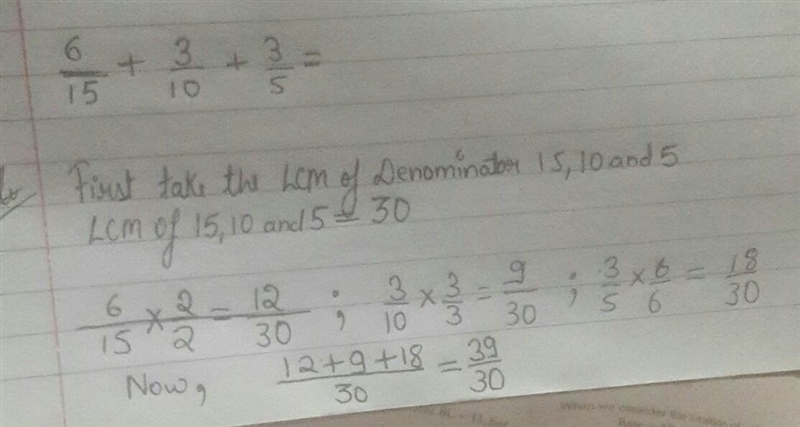 6/15 + 3/10 + 3/5 =
First take the LCM of Denominator 15, 10 and 5
LCM of 15, 10 and 5 = 30
6/15 × 2/2 = 12/30 ; 3/10 × 3/3 = 9/30 ; 3/5 × 6/6 = 18/30
Now, (12+9+18)/30 = 39/30